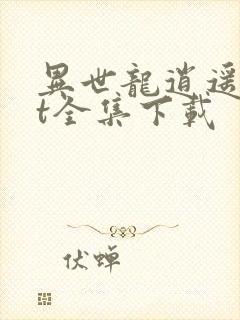 異世龍逍遥
t全集下載
伏蝉